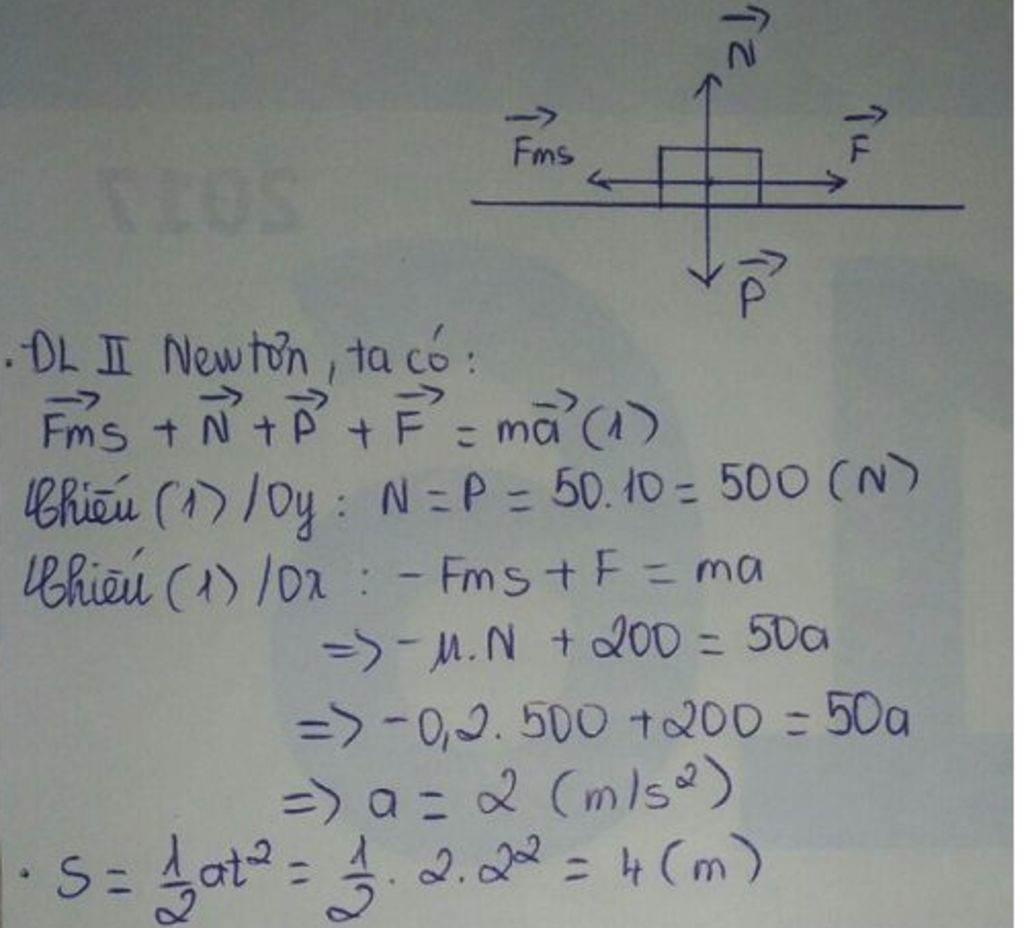 N⃗
F⃗ms
F⃗
2017
P⃗
. ĐL II Newtơn, ta có:
F⃗ms + N⃗ + P⃗ + F⃗ = ma⃗ (1)
Chiếu (1) /Oy : N = P = 50.10 = 500 (N)
Chiếu (1) /Ox : - Fms + F = ma
=> - μ.N + 200 = 50a
=> -0,2. 500 +200 = 50a
=> a = 2 (m/s²)
. S = 1/2 at² = 1/2 . 2.2² = 4 (m)